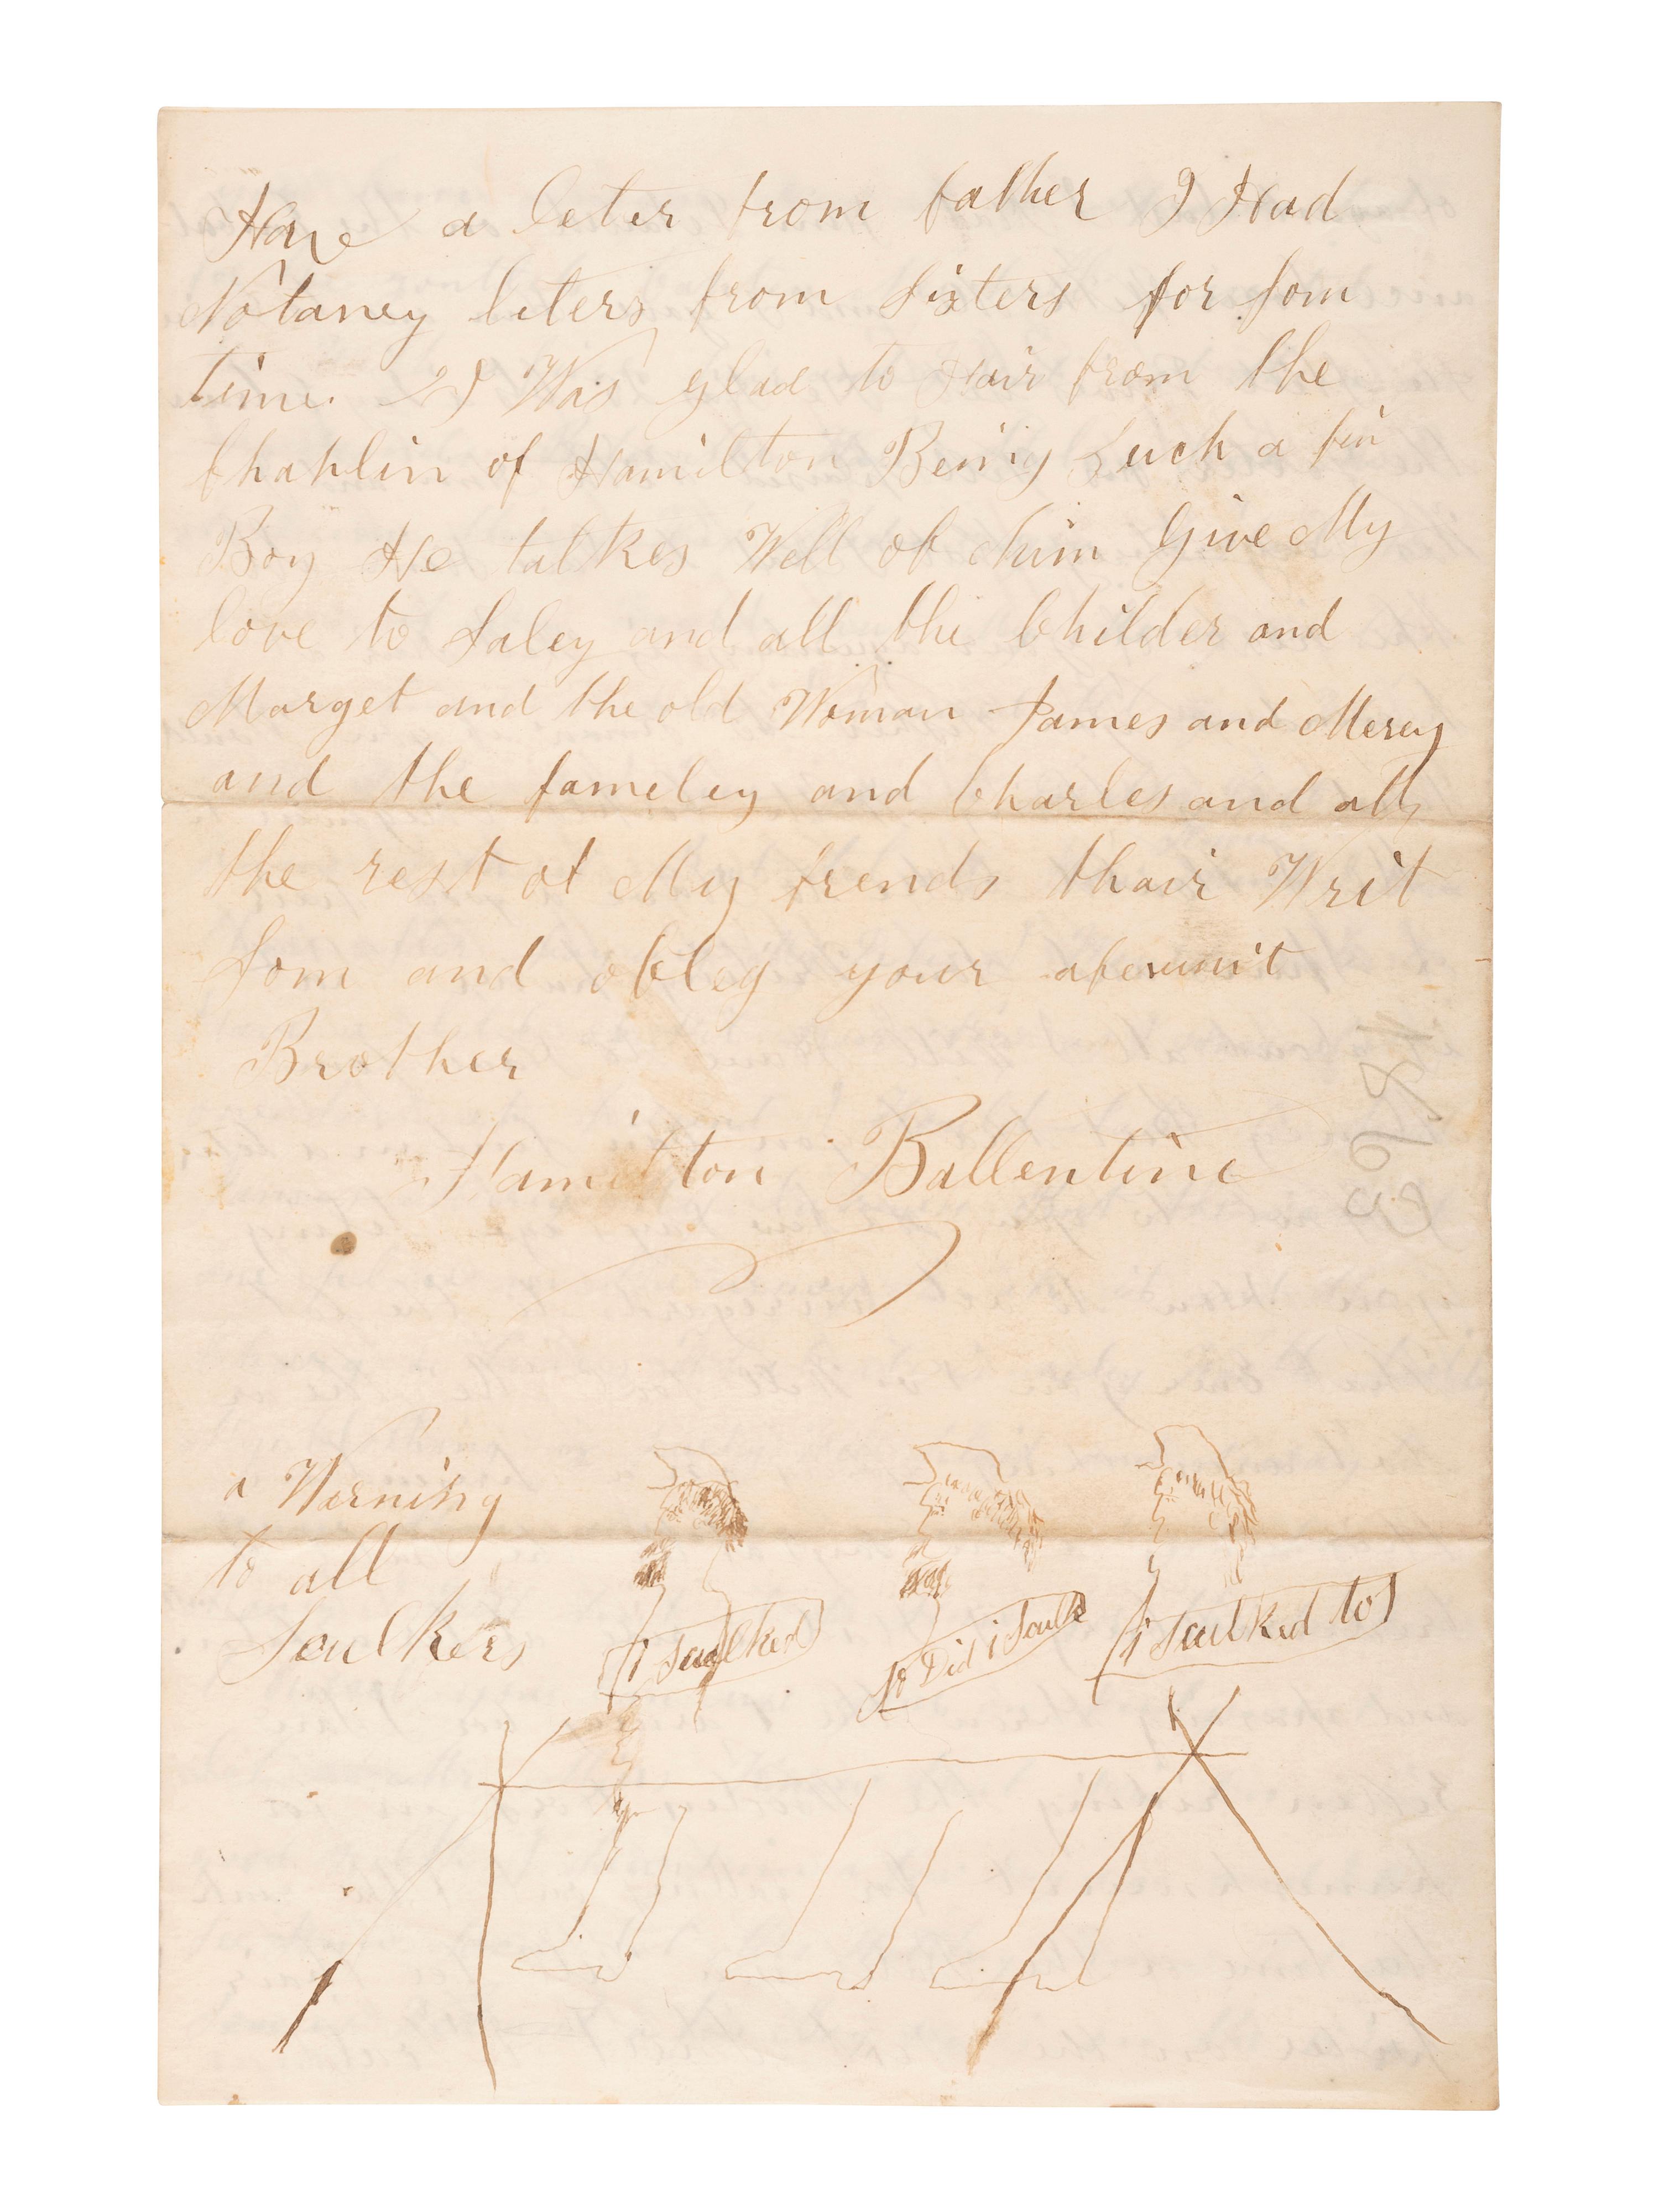 Have a leter from father I Had
Notaney leters from Sisters for Som
time. I Was glad to Hair from the
Chaplin of Hamilton Being Such a fin
Boy He talkes Well of Him Give My
love to Saley and all the Childer and
Marget and the old Woman James and Merey
and the fameley and Charles and all
the rest of My frends thair Writ
Som and obleg your
Brother
Hamilton Ballentine
a Warning
to all
Sculkers
i Sculked
So Did i Sculk
i Sculked to